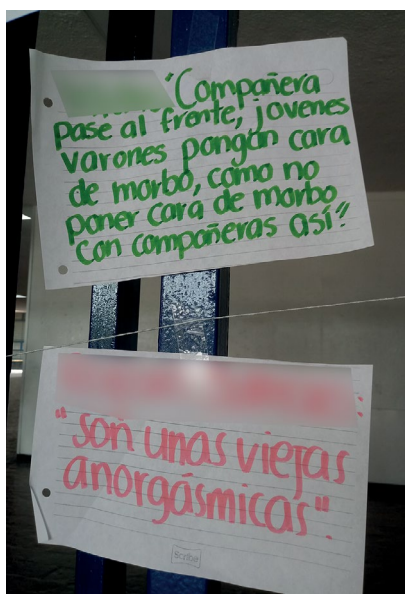 "Compañera
pase al frente, jovenes
varones pongan cara
de morbo, como no
poner cara de morbo
con compañeras así"
:
"son unas viejas
anorgásmicas".
Scribe